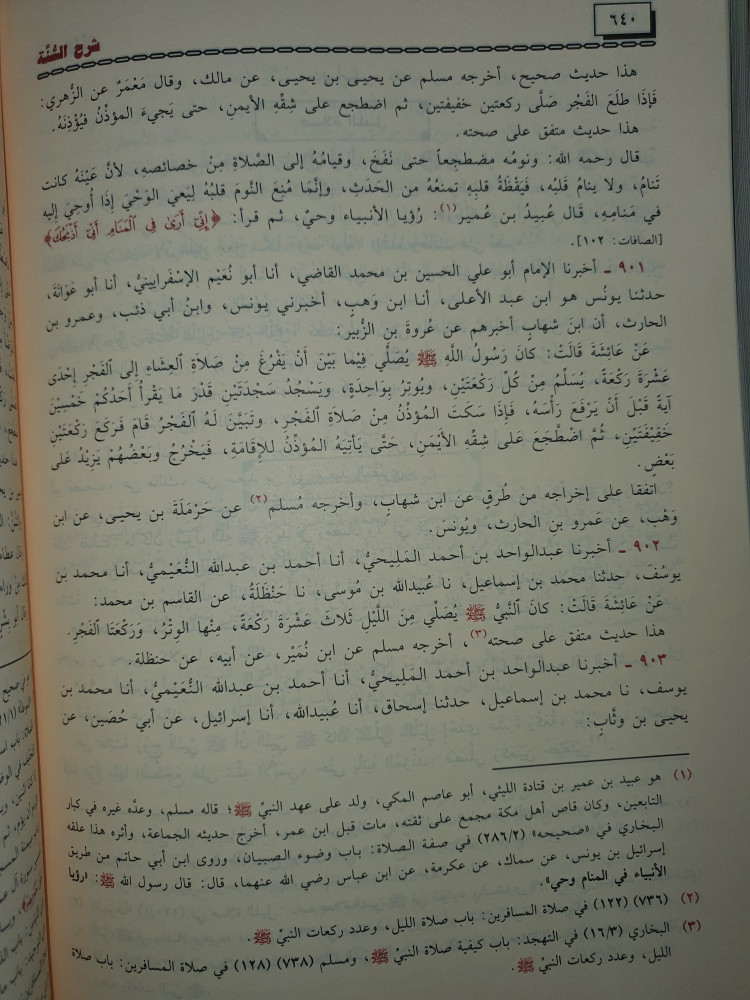 ٦٤٠
شرح السُّنَّة
هذا حديث صحيح، أخرجه مسلم عن يحيى بن يحيى، عن مالك، وقال مَعْمَرٌ عن الزُّهري:
فَإذَا طَلَعَ الفَجْر صَلَّى ركعتين خفيفتين، ثم اضطجع على شِقِّهِ الأيمنِ، حتى يَجيءَ المؤذِّنُ فيُؤْذِنَهُ.
هذا حديث متفق على صحته.
قال رحمه الله: ونومُه مضطجعاً حتى نَفَخَ، وقيامُهُ إلى الصَّلاةِ مِنْ خصائصهِ، لأنَّ عَيْنَهُ كانت
تَنامُ، ولا ينامُ قَلبُه، فيَقْظَةُ قلبِهِ تمنعُهُ من الحَدَثِ، وإنَّمَا مُنِعَ النَّومَ قلبُهُ لِيَعيَ الوَحْيَ إذَا أُوحِيَ إليه
في مَنامِهِ، قَال عُبيدُ بن عُميرٍ(١): رُؤيا الأنبياء وحيٌ، ثم قرأ: ﴿إِنِّي أَرَى فِي الْمَنَامِ أَنِّي أَذْبَحُكَ﴾
[الصافات: ١٠٢].
٩٠١ ـ أخبرنا الإمام أبو علي الحسين بن محمد القاضي، أنا أبو نُعَيْم الإسْفَراييِنيُّ، أنا أبو عَوَانَةَ،
حدثنا يونُس هو ابن عبد الأعلى، أنا ابن وَهبٍ، أخبرني يونس، وابنُ أبي ذئب، وعمرو بن
الحارث، أن ابنَ شهابٍ أخبرهم عن عُروةَ بن الزُّبير:
عَنْ عَائِشَةَ قَالَتْ: كانَ رَسُولُ اللَّهِ ﷺ يُصَلِّي فِيمَا بَيْنَ أَنْ يَفْرُغَ مِنْ صَلاَةِ العِشَاءِ إلى الفَجْرِ إحْدَى
عَشْرَةَ رَكْعَةً، يُسَلِّمُ مِنْ كُلِّ رَكْعَتَيْنِ، ويُوتِرُ بِوَاحِدَةٍ، ويَسْجُدُ سَجْدَتَيْنِ قَدْرَ مَا يَقْرأُ أَحَدُكُمْ خَمْسِينَ
آيَةً قَبْلَ أَنْ يَرْفَعَ رَأْسَهُ، فَإِذَا سَكَتَ المُؤذِّنُ مِنْ صَلاَةِ الفَجْرِ، وتَبَيَّنَ لَهُ الفَجْرُ قَامَ فَرَكَعَ رَكْعَتَيْنِ
خَفِيفَتَيْنِ، ثُمَّ اضْطَجَعَ عَلى شِقِّهِ الأَيْمَنِ، حَتَّى يَأتِيَهُ المُؤذِّنُ للإِقَامَةِ، فَيَخْرُجُ وبَعْضُهُمْ يَزِيْدُ عَلى
بَعْضٍ.
اتفقا على إخراجه من طُرقٍ عن ابن شهابٍ، وأخرجه مُسلم(٢) عن حَرْمَلَةَ بن يحيى، عن ابن
وَهْب، عن عَمرو بن الحارث، ويُونسَ.
٩٠٢ ـ أخبرنا عبدالواحد بن أحمد المَلِيحيُّ، أنا أحمد بن عبدالله النُّعَيْميُّ، أنا محمد بن
يوسُفَ، حدثنا محمد بن إسماعيل، نا عُبيدالله بن مُوسى، نا حَنْظَلَةُ، عن القاسم بن محمد:
عَنْ عَائِشَةَ قَالَتْ: كانَ النَّبيُّ ﷺ يُصَلِّي مِنَ اللَّيْلِ ثَلاثَ عَشْرَةَ رَكْعَةً، مِنْها الوِتْرُ، وَرَكْعَتَا الفَجْرِ.
هذا حديث متفق على صحته(٣)، أخرجه مسلم عن ابن نُمَيْر، عن أبيه، عن حنظلة.
٩٠٣ ـ أخبرنا عبدالواحد بن أحمد المَلِيحيُّ، أنا أحمد بن عبدالله النُّعَيْميُّ، أنا محمد بن
يوسف، نا محمد بن إسماعيل، حدثنا إسحاق، أنا عُبيدالله، أنا إسرائيل، عن أبي حُصَين، عن
يحيى بن وثَّابٍ:
(١) هو عبيد بن عمير بن قتادة الليثي، أبو عاصم المكي، ولد على عهد النبيّ ﷺ؛ قاله مسلم، وعدَّه غيره في كبار
التابعين، وكان قاص أهل مكة مجمع على ثقته، مات قبل ابن عمر، أخرج حديثه الجماعة، وأثره هذا علقه
البخاري في «صحيحه» (٢٨٦/٢) في صفة الصلاة: باب وضوء الصبيان، وروى ابن أبي حاتم من طريق
إسرائيل بن يونس، عن سماك، عن عكرمة، عن ابن عباس رضي الله عنهما، قال: قال رسول الله ﷺ: «رؤيا
الأنبياء في المنام وحي».
(٢) (٧٣٦) (١٢٢) في صلاة المسافرين: باب صلاة الليل، وعدد ركعات النبيّ ﷺ.
(٣) البخاري (١٦/٣) في التهجد: باب كيفية صلاة النبيّ ﷺ، ومسلم (٧٣٨) (١٢٨) في صلاة المسافرين: باب صلاة
الليل، وعدد ركعات النبيّ ﷺ.